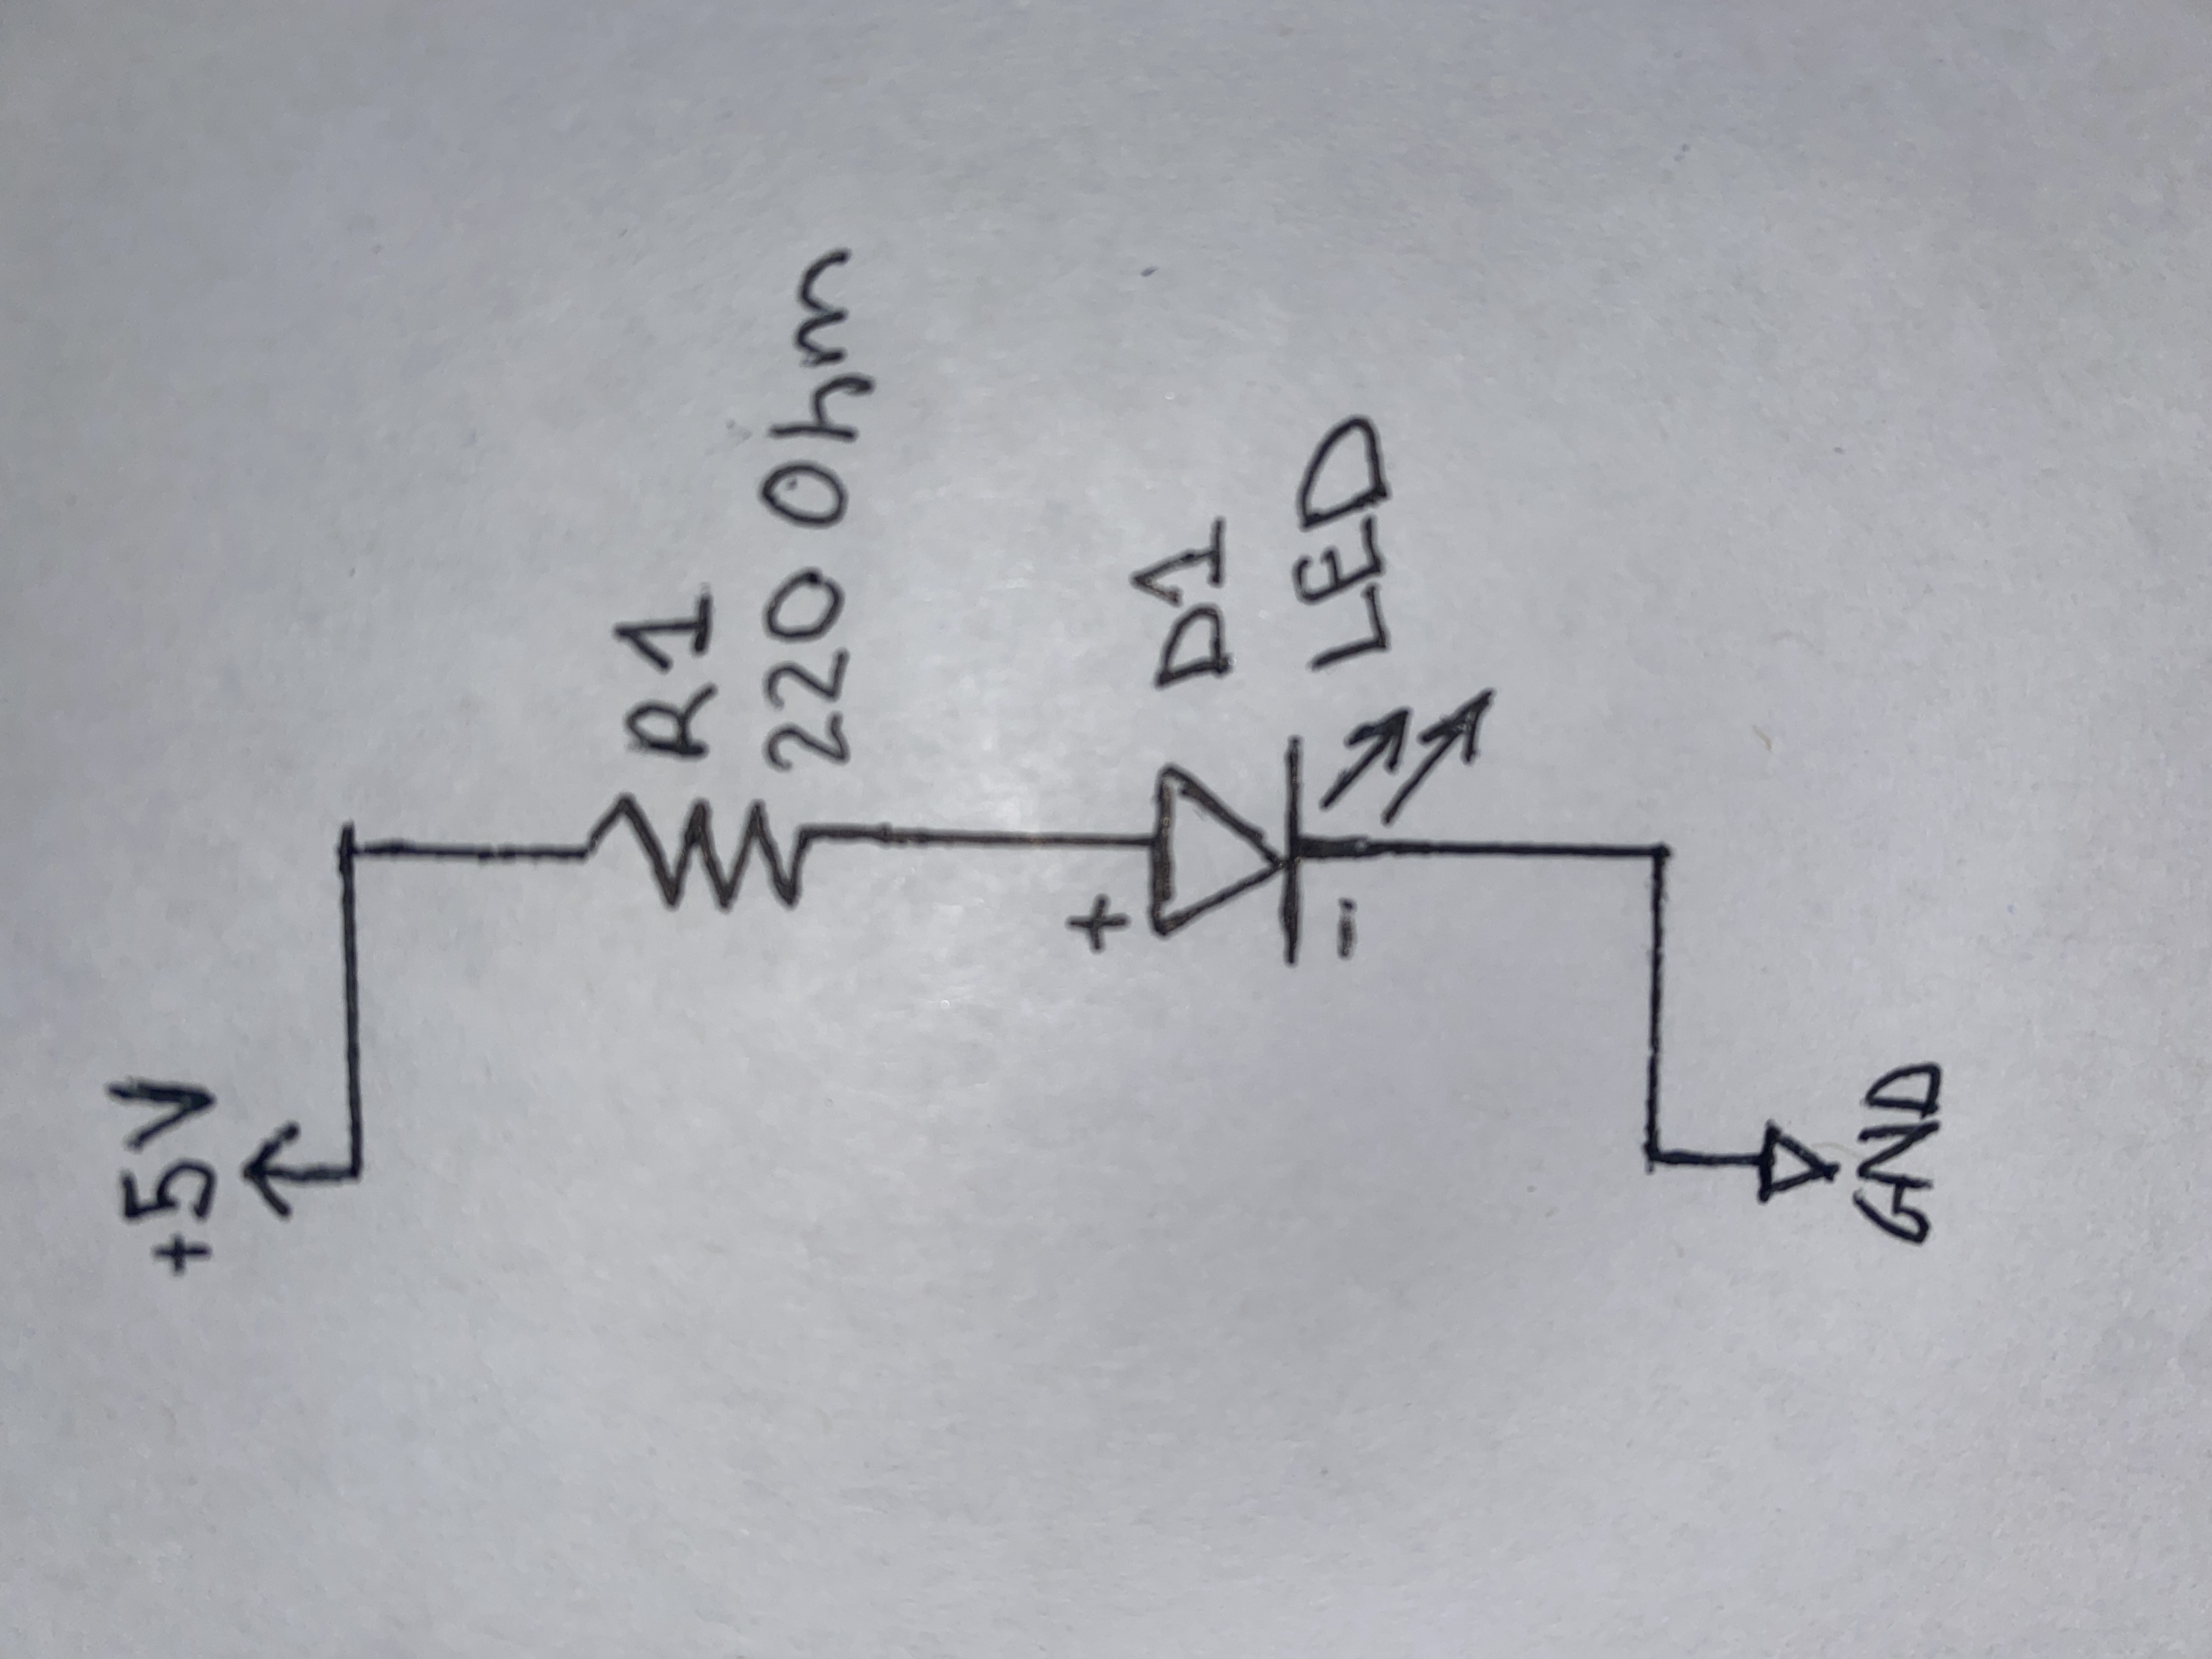 +5V
R1
220 Ohm
+
D1
-
LED
GND